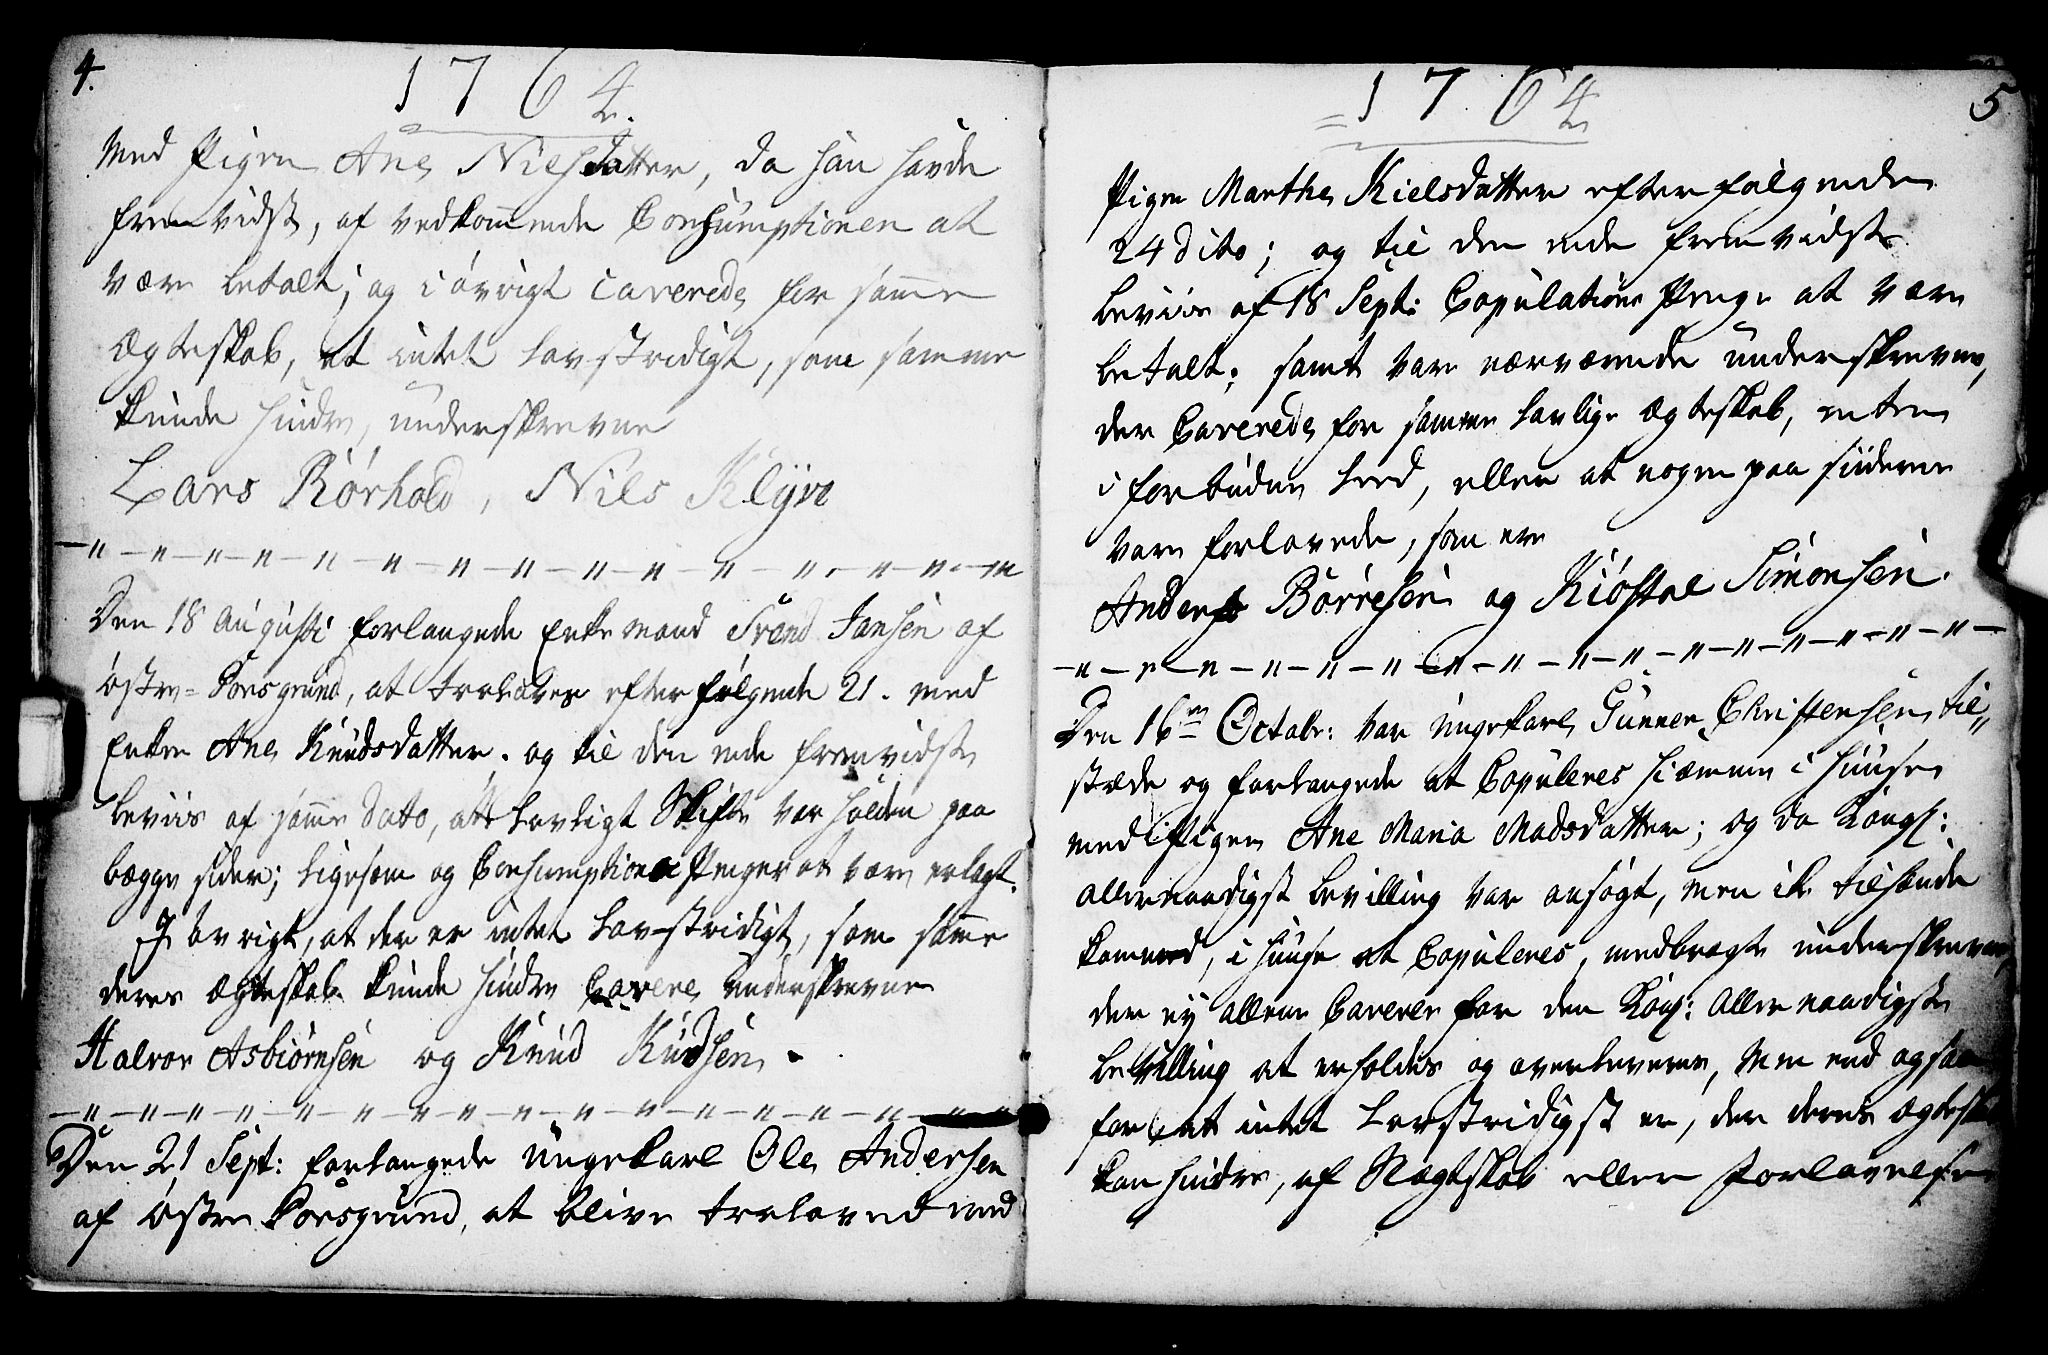 4.
1764.
med Pigen Ane Nielsdatter, da han havde
fremvidst, af vedkommende Consumptionen at
være betalt; og i øvrigt caverede for samme
Ægteskab, at intet lovstridigt, som samme
kunde hindre, underskrevne
Lars Rörhold, Nils Klÿve
Den 18 Augusti forlangede Enkemand Trond Jansen af
østre-Porsgrund, at troloves efterfølgende 21. med
Enken Ane Knudsdatter. og til den ende fremvidste
beviis af samme dato, at lovligt Skifte var holden paa
begge sider; ligesom og Consumptions Penger at være erlagt.
I øvrigt, at der er intet lov-stridigt, som samme
deres Ægteskab kunde hindre Cavere underskrevne
Halvor Asbiörnsen og Knud Knudsen.
Den 21 Sept: forlangede Ungekarl Ole Andersen
af østre Porsgrund, at blive trolovet med
1764
5
Pigen Marthe Kielsdatter efterfølgende
24 dito; og til den ende fremvidste
beviis af 18 Sept: Copulations Penge at være
betalt; samt var nærværende underskrevne,
der Caverede for samme lovlige Ægteskab, enten
i forbuden Leed, eller at nogen paa siiderne
vare forlovede, som ere
Anders Börresen og Kiöstel Simonsen.
Den 16de Octobr: var Ungekarl Gunner Christensen til„
stæde og forlangede at Copuleres hiemme i Huuset
med Pigen Ane Maria Madsdatter; og da Kongl:
allernaadigst bevilling var ansøgt, men ik tilhænde
kommed, i Huuse at Copuleres, medbragte underskrevne,
der ej allene Caverer for den Kongl: allernaadigste
bevilling at erholdes og overleveres, men end ogsaa
for at intet Lovstridigst er, der deres Ægteskab
kan hindre, af Slægtskab eller Forlovelse